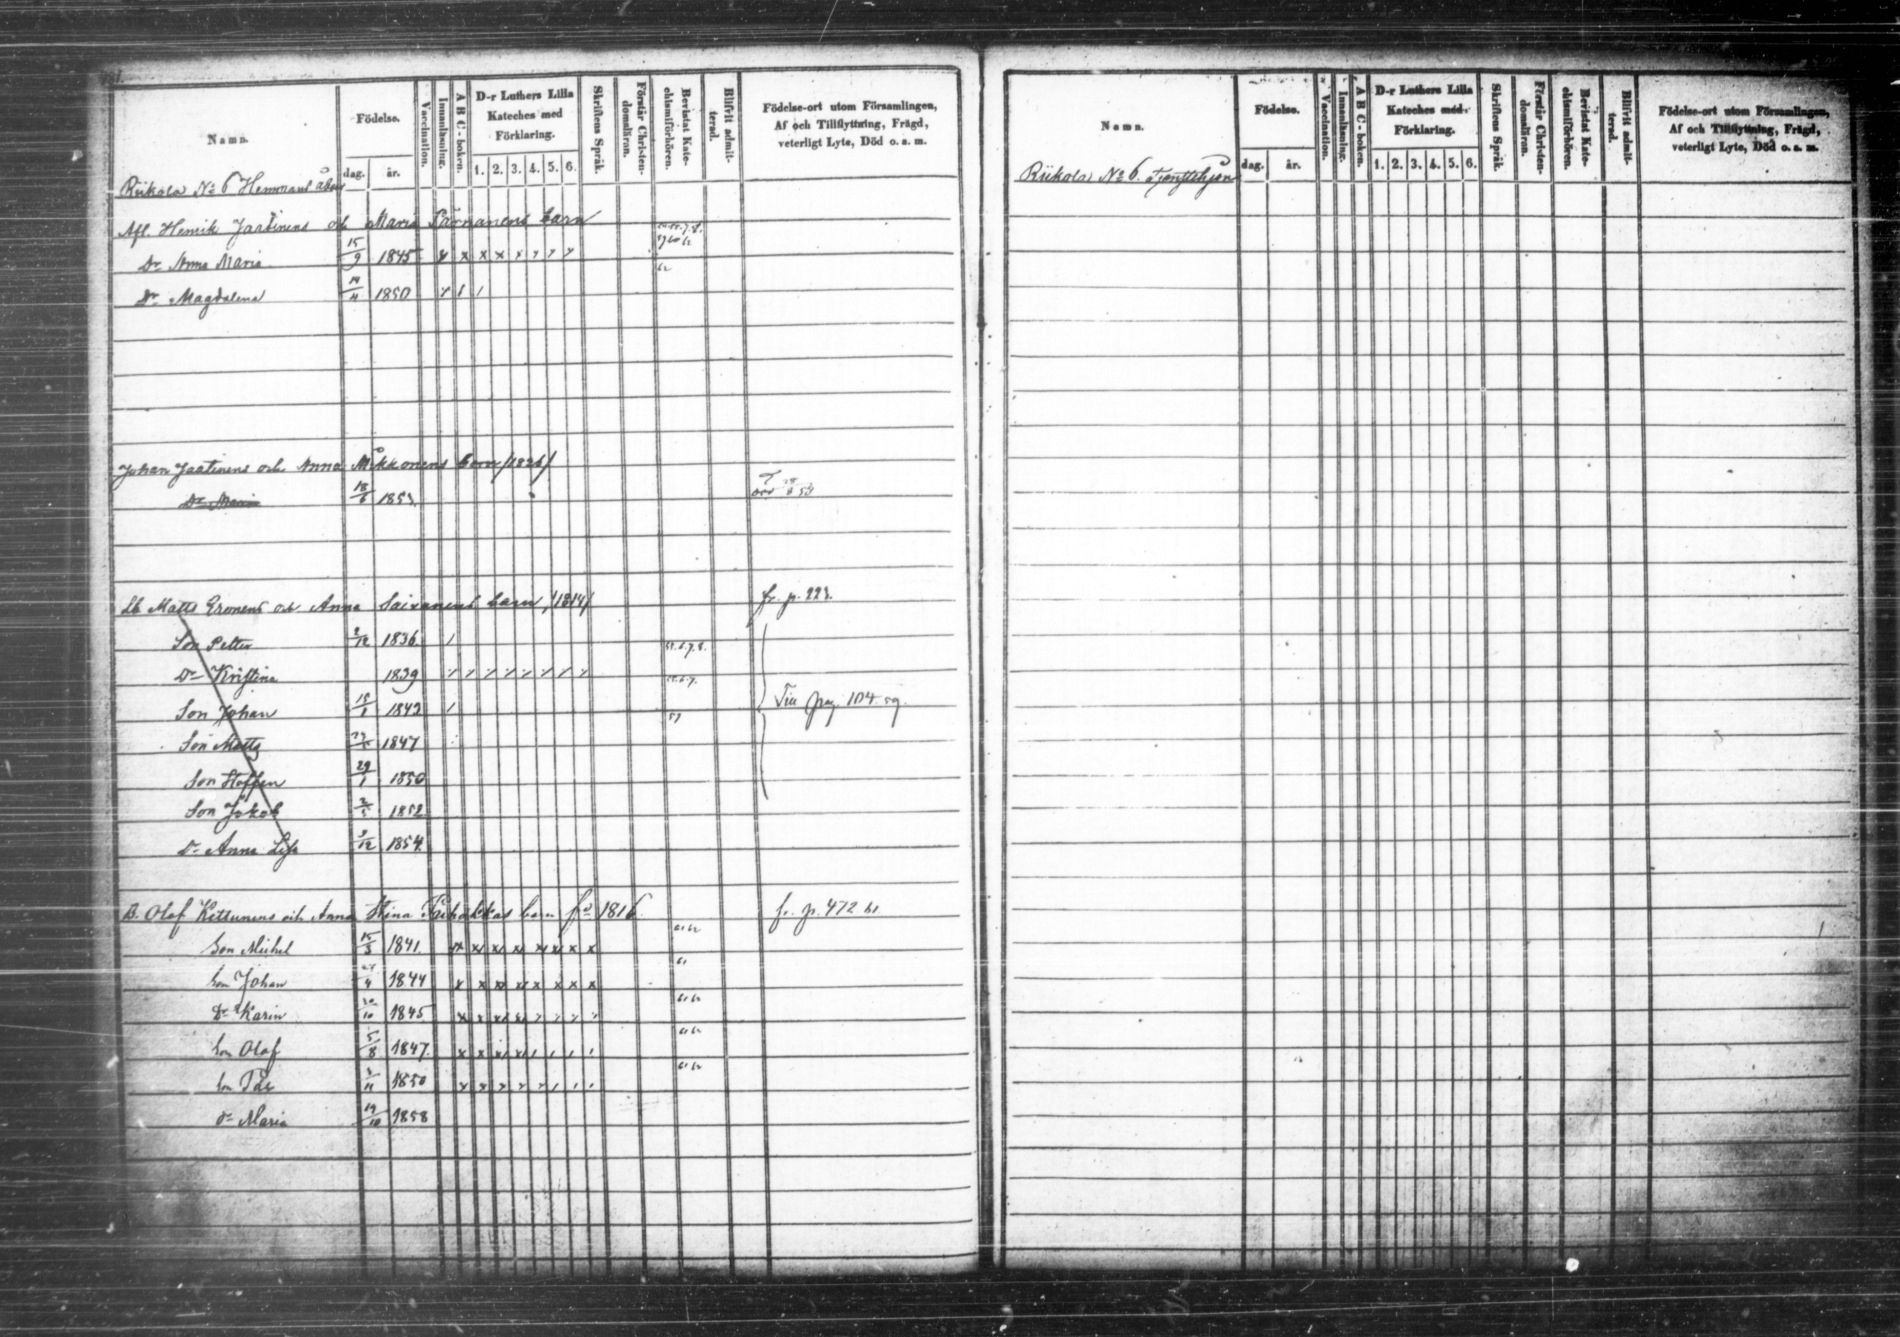 Namn.
Födelse.
dag.
år.
Vaccination.
Innanläsning.
A B C-boken.
D-r Luthers Lilla Kateches med Förklaring.
1. 2. 3. 4. 5. 6.
Skriftens Språk.
Förstår Christendomsläran.
Bevistat Katechismiförhören.
Blifvit admitterad.
Födelse-ort utom Församlingen, Af och Tillflyttning, Frägd, veterligt Lyte, Död o. a. m.
Riikola No 6 Hemmans
Afl. Henrik Jaatinens och Maria barn
Dr Anna Maria 15/9 1845 x x x x
Dr Magdalena 1850
Johan Jaatinens och Anna Mikkonens barn /1826/
Dr Maria 18/5 1853
Lb Matts Eronens och Anna Saixanens barn, /1814/ fr. p. 223.
Son Petter 2/12 1836 55.6.7.8.
Dr Kristina 1839 55.6.7.
Son Johan 15/1 1843 57 Till pag. 104. 59.
Son Matts 1847
Son Staffan 29/1 1850
Son Jakob 2/5 1852
Dr Anna Lisa 1854
B. Olof Kettunens och Anna Stina barn fd 1816. fr. p. 472 61
Son Michel 15/3 1841 61 62
Son Johan 1844 61
Dr Karin 1845 61 62
Son Olof 5/8 1847. 61 62
Son Pål 1850 61 62
Dr Maria 19/10 1858
Namn.
Födelse.
dag.
år.
Vaccination.
Innanläsning.
A B C-boken.
D-r Luthers Lilla Kateches med Förklaring.
1. 2. 3. 4. 5. 6.
Skriftens Språk.
Förstår Christendomsläran.
Bevistat Katechismiförhören.
Blifvit admitterad.
Födelse-ort utom Församlingen, Af och Tillflyttning, Frägd, veterligt Lyte, Död o. a. m.
Riikola No 6. Tjenstehjon